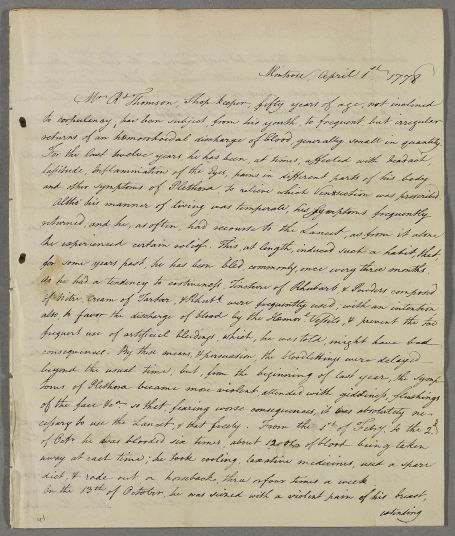 Montrose, April 1st 1778
Mr. Rt. Thomson, Shop-keeper, fifty years of age, not inclined
to corpulency, has been subject from his youth, to frequent but irregular
returns of an hæmorrhoidal discharge of blood generally small in quantity.
For the last twelve years he has been, at times, affected with headach,
lassitude, Inflammation of the Eyes, pains in different parts of his body
and other symptoms of Plethora, to relieve which Venesection was prescribed.
Altho' his manner of living was temperate, his symptoms frequently
returned, and he, as often, had recourse to the Lancet, as from it alone
he experienced certain relief. This, at length, induced such a habit, that,
for some years past, he has been bled commonly, once every three months.
As he had a tendency to costiveness, Tincture of Rhubarb & Powders composed
of Nitre, Cream of Tartar, & Rhubb. were frequently used, with an intention
also to favor the discharge of blood by the Hæmorl. Vessels, & prevent the too
frequent use of artificial bleedings, which, he was told, might have bad
consequences. By these means, & persuasion, the bloodlettings were delayed
beyond the usual time, but, from the beginning of last year, the symp-
toms of Plethora became more violent, attended with giddiness, flushings
of the face &c. so that fearing worse consequences, it was absolutely ne-
cessary to use the Lancet, & that freely. From the 1st of Feby. to the 2d.
of Octr. he was blooded six times, about 12 of blood being taken
away at each time; he took cooling, laxative medicines, used a spare
diet, & rode out on horseback, three or four times a week
On the 13th of October, he was seized with a violent pain of his breast,
extending